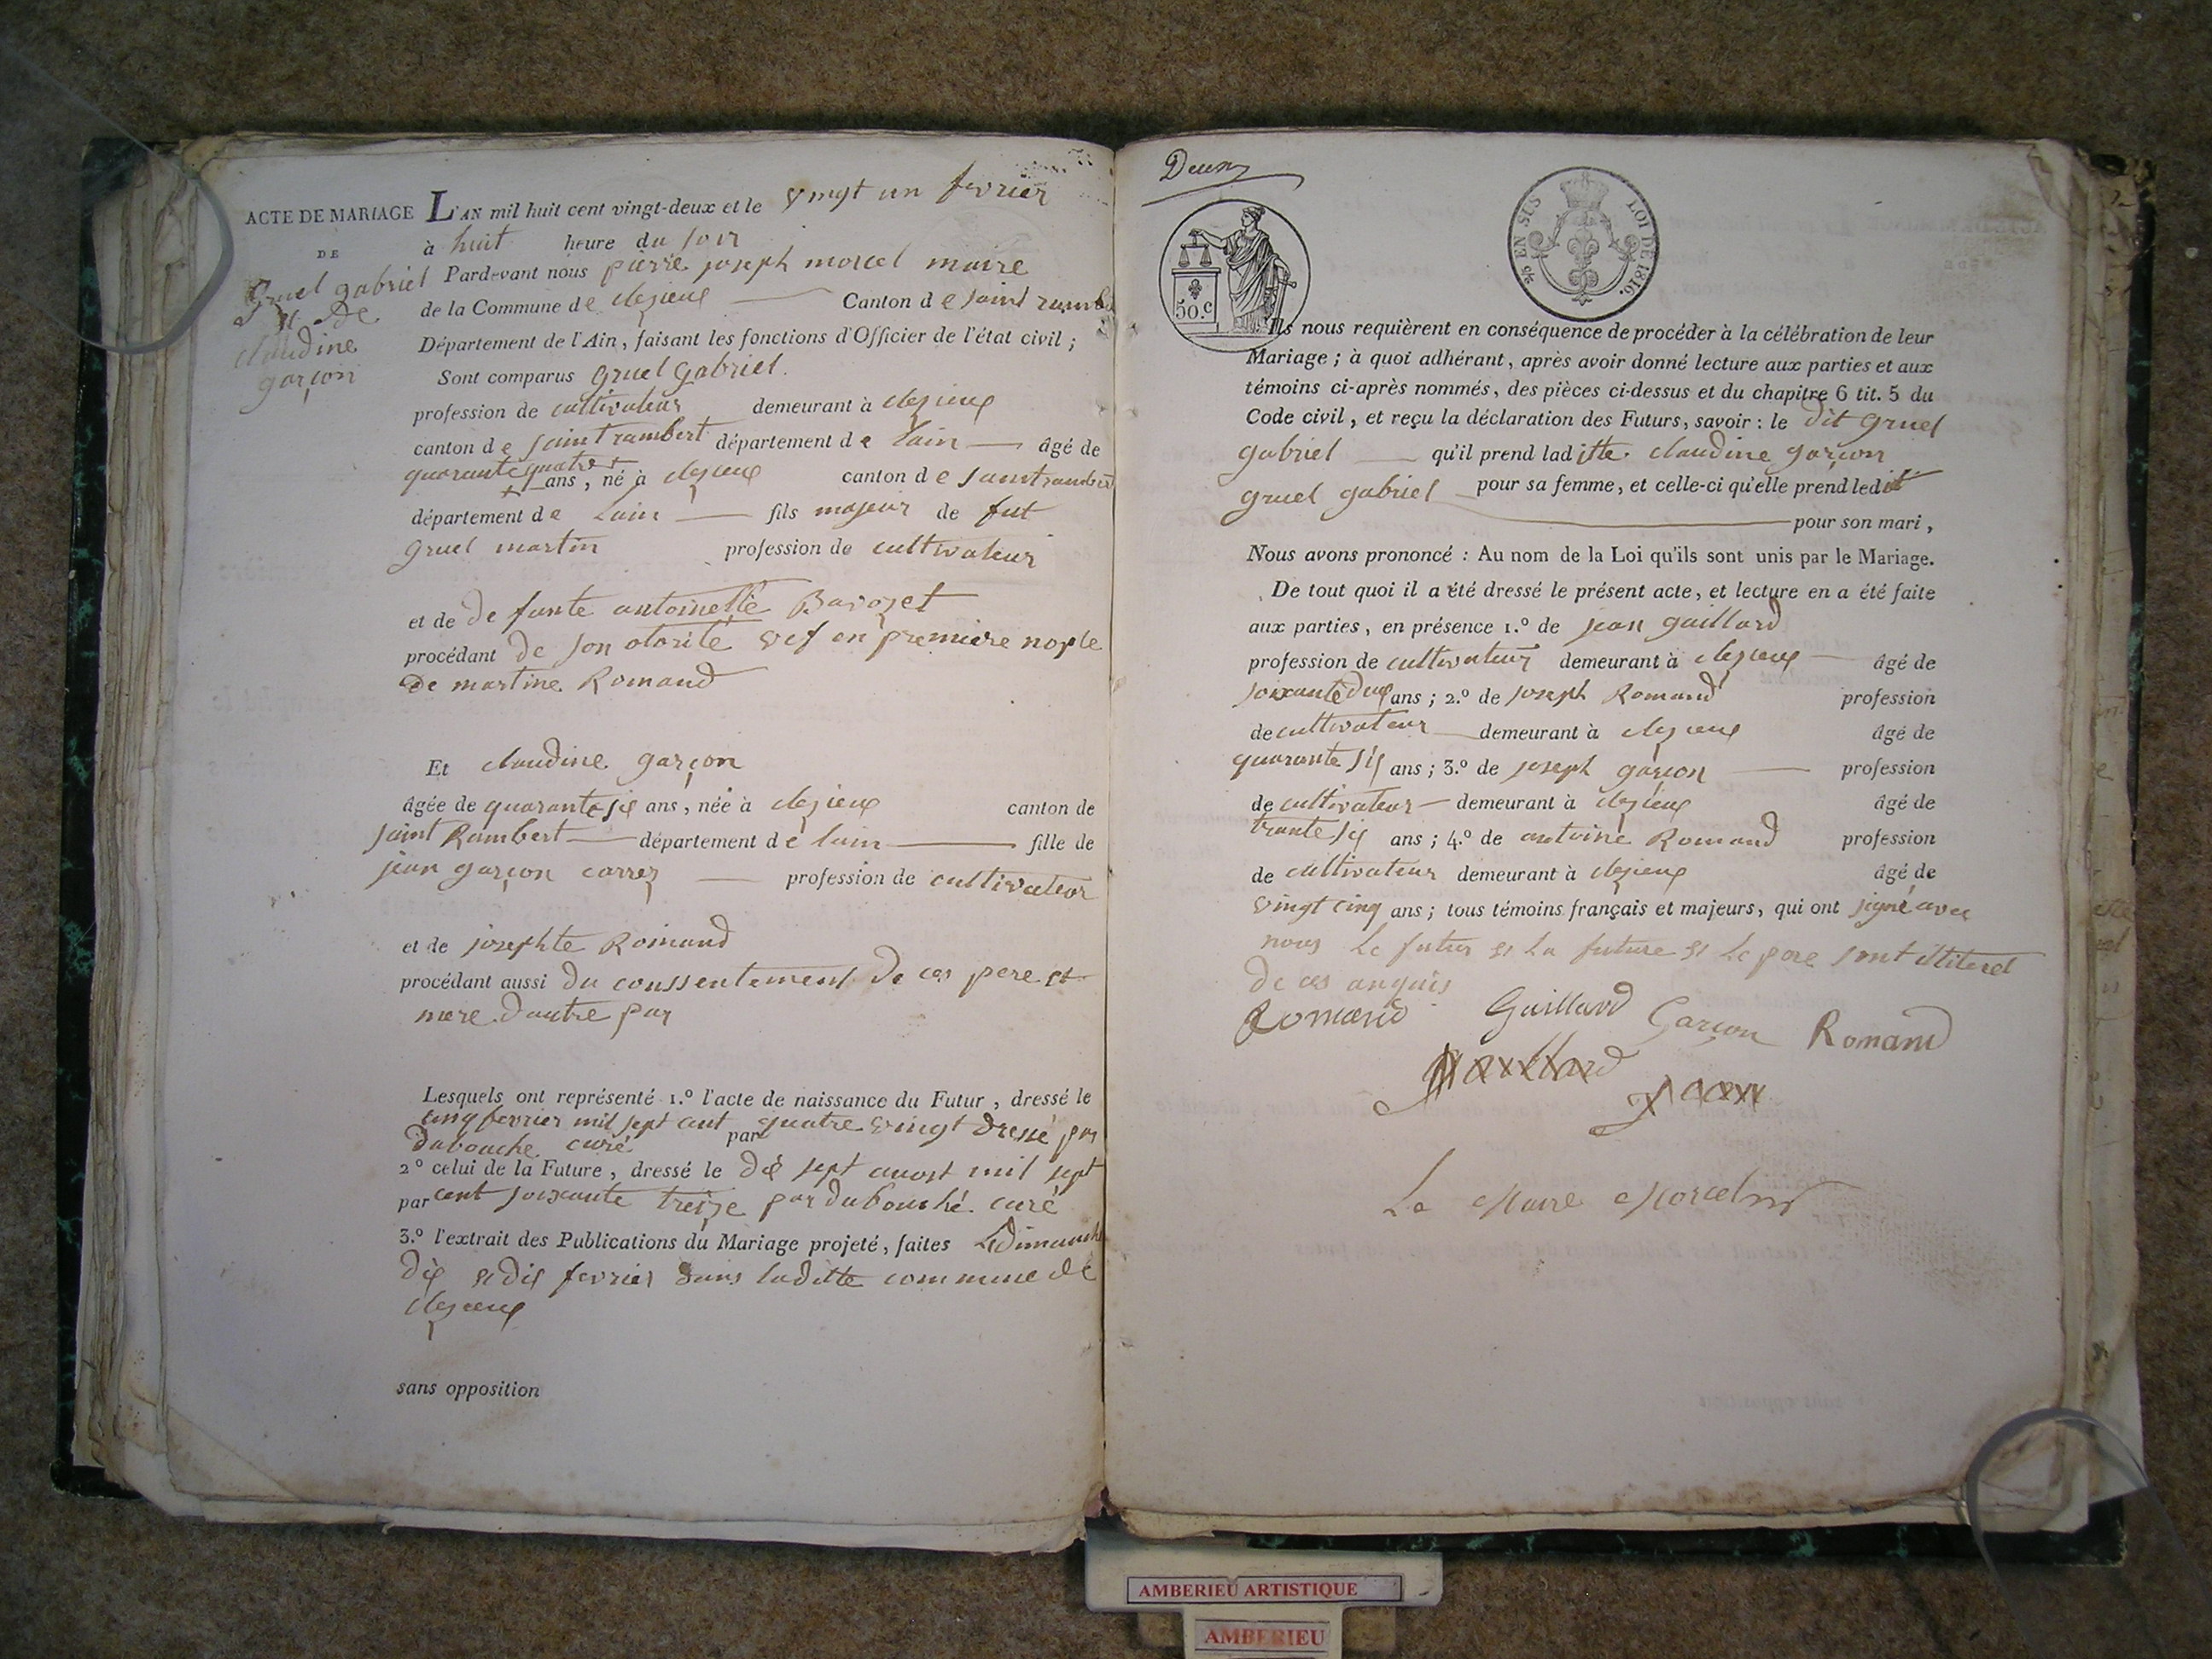 ACTE DE MARIAGE
DE
Gruel gabriel
Et De
claudine
garçon
L'AN mil huit cent vingt-deux et le vingt un fevrier
à huit heure du soir
Pardevant nous pierre joseph morcel maire
de la Commune de clezieux Canton de saint ramb
Département de l'Ain, faisant les fonctions d'Officier de l'état civil ;
Sont comparus gruel gabriel.
profession de cultivateur demeurant à clezieux
canton de saint rambert département de lain âgé de
quarante quatre ans, né à clezieux canton de saint rambert
département de Lain fils majeur de fut
gruel martin profession de cultivateur
et de de funte antoinette Bavozet
procédant de son otorité vef en premiere nopse
De martine Romand
Et claudine garçon
âgée de quarante sis ans, née à clezieux canton de
saint Rambert département de lain fille de
jean garçon carrez profession de cultivateur
et de josephte Romand
procédant aussi du conssentement de ces pere et
mere dautre par
Lesquels ont représenté 1.º l'acte de naissance du Futur, dressé le
cinq fevrier mil sept cent quatre vingt dressé par
par dubouche curé
2º celui de la Future, dressé le dis sept auost mil sept
par cent soixante treize par dubouché curé
3.º l'extrait des Publications du Mariage projeté, faites Le dimanche
dis et dis fevrier dans laditte commune de
clezieux
sans opposition
Deux
50.c
EN SUS LOI DE 1816.
Ils nous requièrent en conséquence de procéder à la célébration de leur
Mariage ; à quoi adhérant, après avoir donné lecture aux parties et aux
témoins ci-après nommés, des pièces ci-dessus et du chapitre 6 tit. 5 du
Code civil, et reçu la déclaration des Futurs, savoir : le dit gruel
gabriel qu'il prend laditte claudine garçon
pour sa femme, et celle-ci qu'elle prend ledit
gruel gabriel pour son mari,
Nous avons prononcé : Au nom de la Loi qu'ils sont unis par le Mariage.
De tout quoi il a été dressé le présent acte, et lecture en a été faite
aux parties, en présence 1.º de jean gaillard
profession de cultivateur demeurant à clezieux âgé de
soixante deux ans ; 2.º de joseph Romand profession
de cultivateur demeurant à clezieux âgé de
quarante sis ans ; 3.º de joseph garçon profession
de cultivateur demeurant à clezieux âgé de
trante sis ans ; 4.º de antoine Romand profession
de cultivateur demeurant à clezieux âgé de
vingt cinq ans ; tous témoins français et majeurs, qui ont signé avec
nous Le futur et La future et Le pere sont
de ces anquis
Romand Gaillard Garçon Romand
Le Maire Morcel
AMBERIEU ARTISTIQUE
AMBERIEU